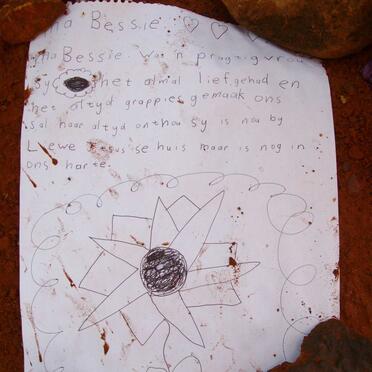 Bessie
Bessie. Was 'n pragtig vrou
sy het almal liefgehad en
het altyd grappies gemaak ons
sal haar altyd onthou sy is nou by
Liewe Jesus se huis maar is nog in
ons harte.